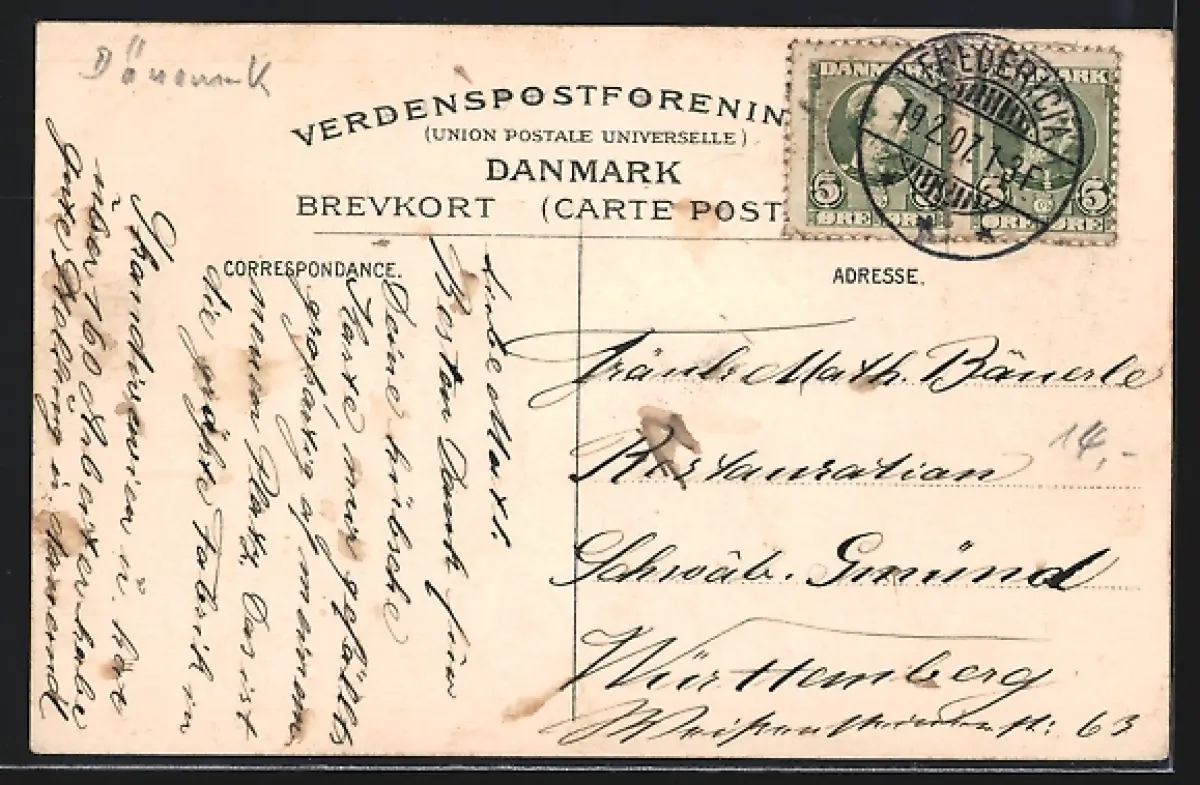 Dänemark
VERDENSPOSTFORENIN
(UNION POSTALE UNIVERSELLE)
DANMARK
BREVKORT (CARTE POST
DANMARK
5 ØRE
DANMARK
5 ØRE
FREDERICIA
19.2.07. 7-3 F
CORRESPONDANCE.
ADRESSE.
Liebe
Besten Dank für
Deine hübsche
Karte mir gefällts
großartig auf meinem
neuen Platz. Das ist
die größte Fabrik in
Skandinavien u. hat
über 160 Arbeiter habe
gute Stellung u. dauernd
Fräul. Math. Bäuerle
Restauration
14,-
Schwäb. Gmünd
Württemberg
63